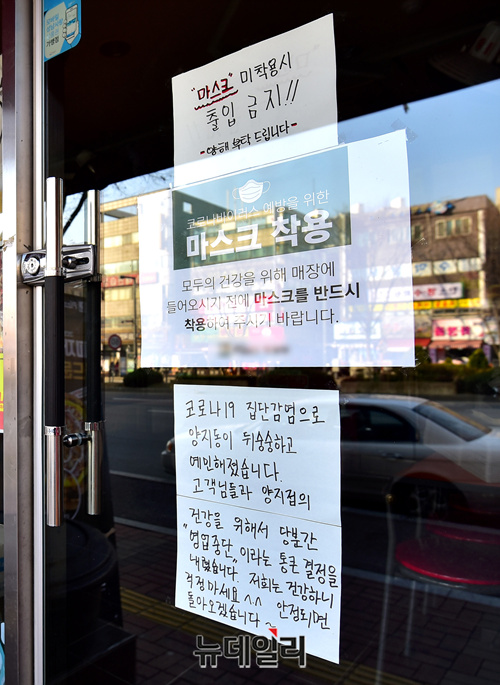 "마스크" 미착용시
출입 금지!!
- 양해 부탁 드립니다 -
코로나바이러스 예방을 위한
마스크 착용
모두의 건강을 위해 매장에
들어오시기 전에 마스크를 반드시
착용하여 주시기 바랍니다.
코로나19 집단감염으로
양지동이 뒤숭숭하고
예민해졌습니다.
고객님들과 양지점의
건강을 위해서 당분간
"영업중단" 이라는 통큰 결정을
내렸습니다. 저희는 건강하니
걱정마세요^^ 안정되면
돌아오겠습니다~
뉴데일리